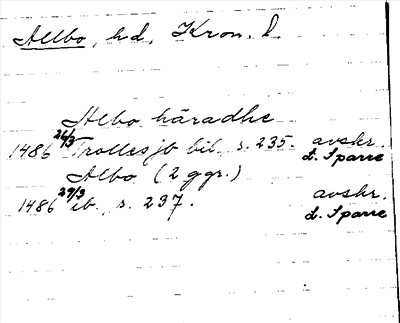 Albo, hd, Kron. l.
Albo häradhe
1486 26/3 Trolles jb bil. s. 235. avskr. L. Sparre
Albo (2 ggr.)
1486 29/3 ib. s. 237. avskr. L. Sparre